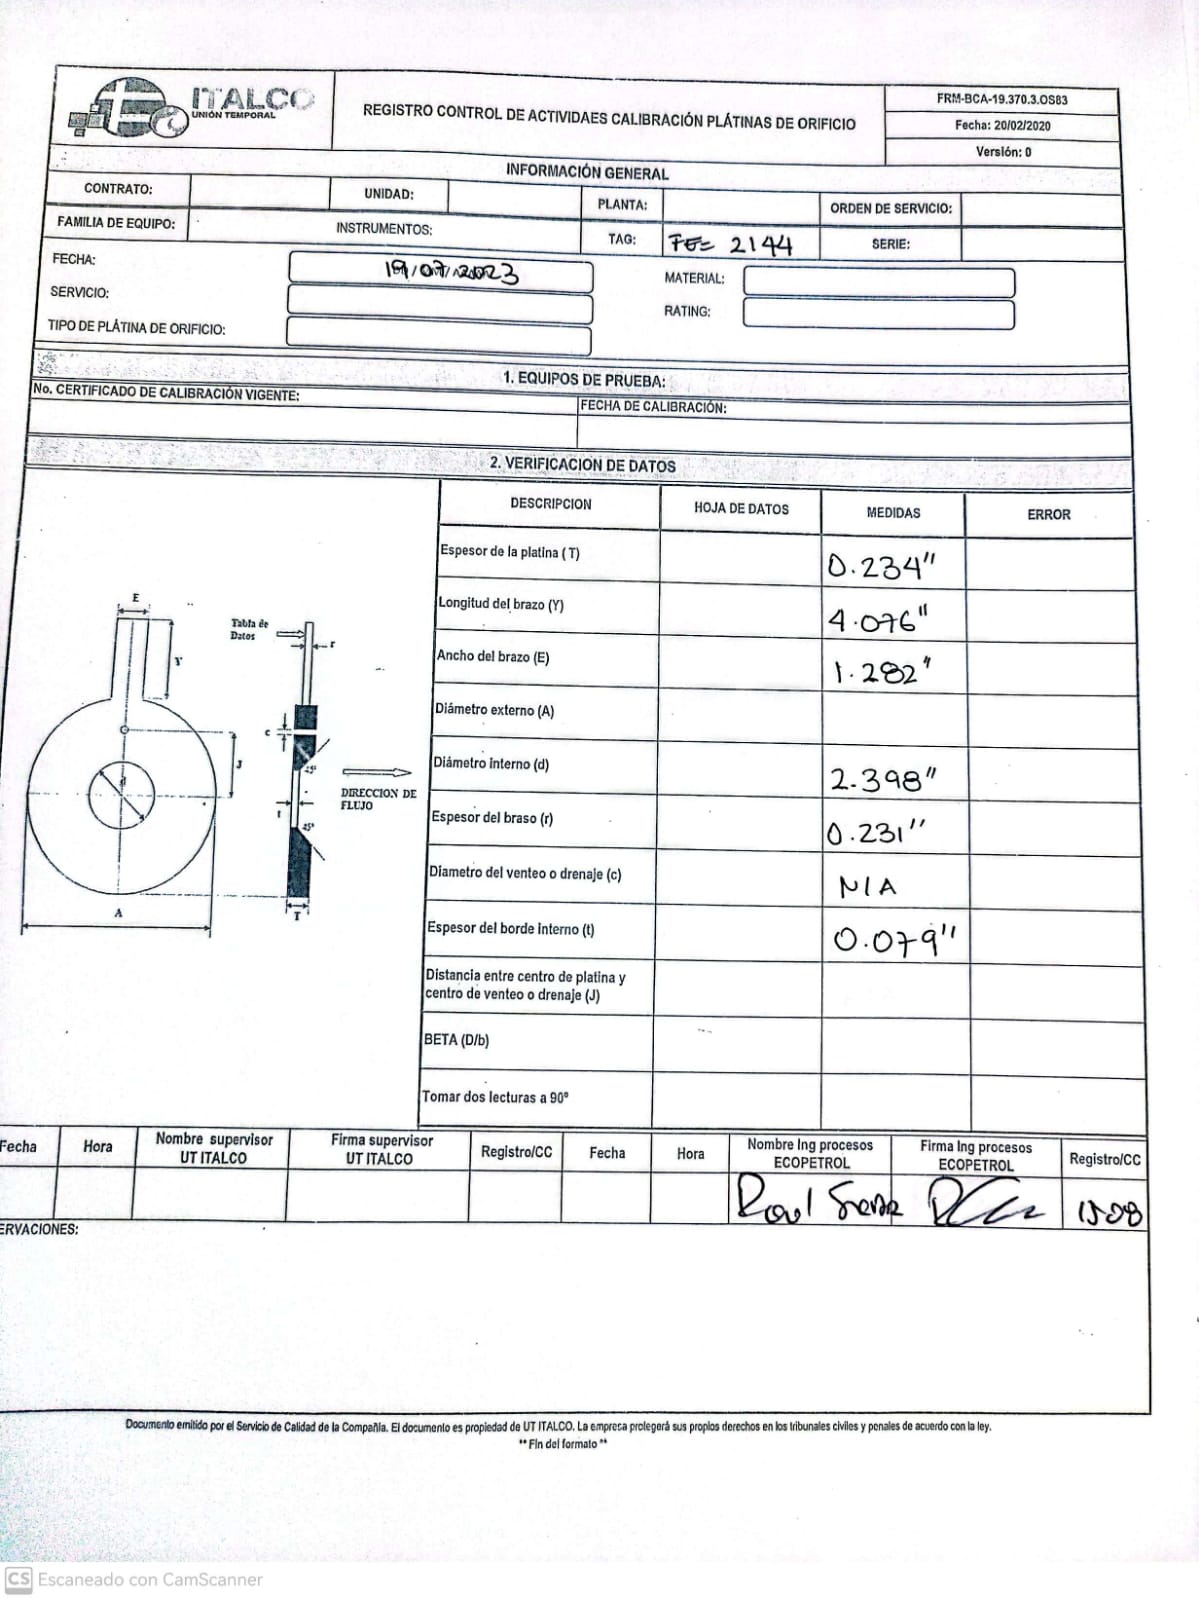 ITALCO
UNIÓN TEMPORAL
REGISTRO CONTROL DE ACTIVIDAES CALIBRACIÓN PLÁTINAS DE ORIFICIO
FRM-BCA-19.370.3.OS83
Fecha: 20/02/2020
Versión: 0
INFORMACIÓN GENERAL
CONTRATO: UNIDAD: PLANTA: ORDEN DE SERVICIO:
FAMILIA DE EQUIPO: INSTRUMENTOS: TAG: FE= 2144 SERIE:
FECHA: 19/07/2023 MATERIAL:
SERVICIO: RATING:
TIPO DE PLÁTINA DE ORIFICIO:
1. EQUIPOS DE PRUEBA:
No. CERTIFICADO DE CALIBRACIÓN VIGENTE: FECHA DE CALIBRACIÓN:
2. VERIFICACION DE DATOS
DESCRIPCION HOJA DE DATOS MEDIDAS ERROR
Espesor de la platina ( T) 0.234"
Longitud del brazo (Y) 4.076"
Ancho del brazo (E) 1.282"
Diámetro externo (A)
Diámetro Interno (d) 2.398"
Espesor del braso (r) 0.231"
Diametro del venteo o drenaje (c) N/A
Espesor del borde Interno (t) 0.079"
Distancia entre centro de platina y
centro de venteo o drenaje (J)
BETA (D/b)
Tomar dos lecturas a 90º
E
Y
J
d
A
Tabla de
Datos
r
c
45°
t
45°
T
DIRECCION DE
FLUJO
Fecha Hora Nombre supervisor UT ITALCO Firma supervisor UT ITALCO Registro/CC Fecha Hora Nombre Ing procesos ECOPETROL Firma Ing procesos ECOPETROL Registro/CC
1508
ERVACIONES:
Documento emitido por el Servicio de Calidad de la Compañia. El documento es propiedad de UT ITALCO. La empresa protegerá sus propios derechos en los tribunales civiles y penales de acuerdo con la ley.
** Fin del formato **
CS Escaneado con CamScanner